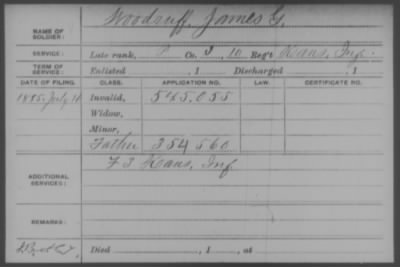 Woodruff, James G.
NAME OF SOLDIER:
SERVICE: Late rank, P Co. I, 10 Reg't Kans. Inf.
TERM OF SERVICE: Enlisted , 1 Discharged , 1
DATE OF FILING. CLASS. APPLICATION NO. LAW. CERTIFICATE NO.
1885, July 11 Invalid, 545,055
Widow,
Minor,
Father 354560
F 3 Kans, Inf
ADDITIONAL SERVICES:
REMARKS:
Died , 1 , at